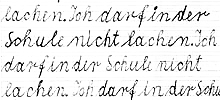 lachen. Ich darf in der
Schule nicht lachen. Ich
darf in der Schule nicht
lachen. Ich darf in der Schu